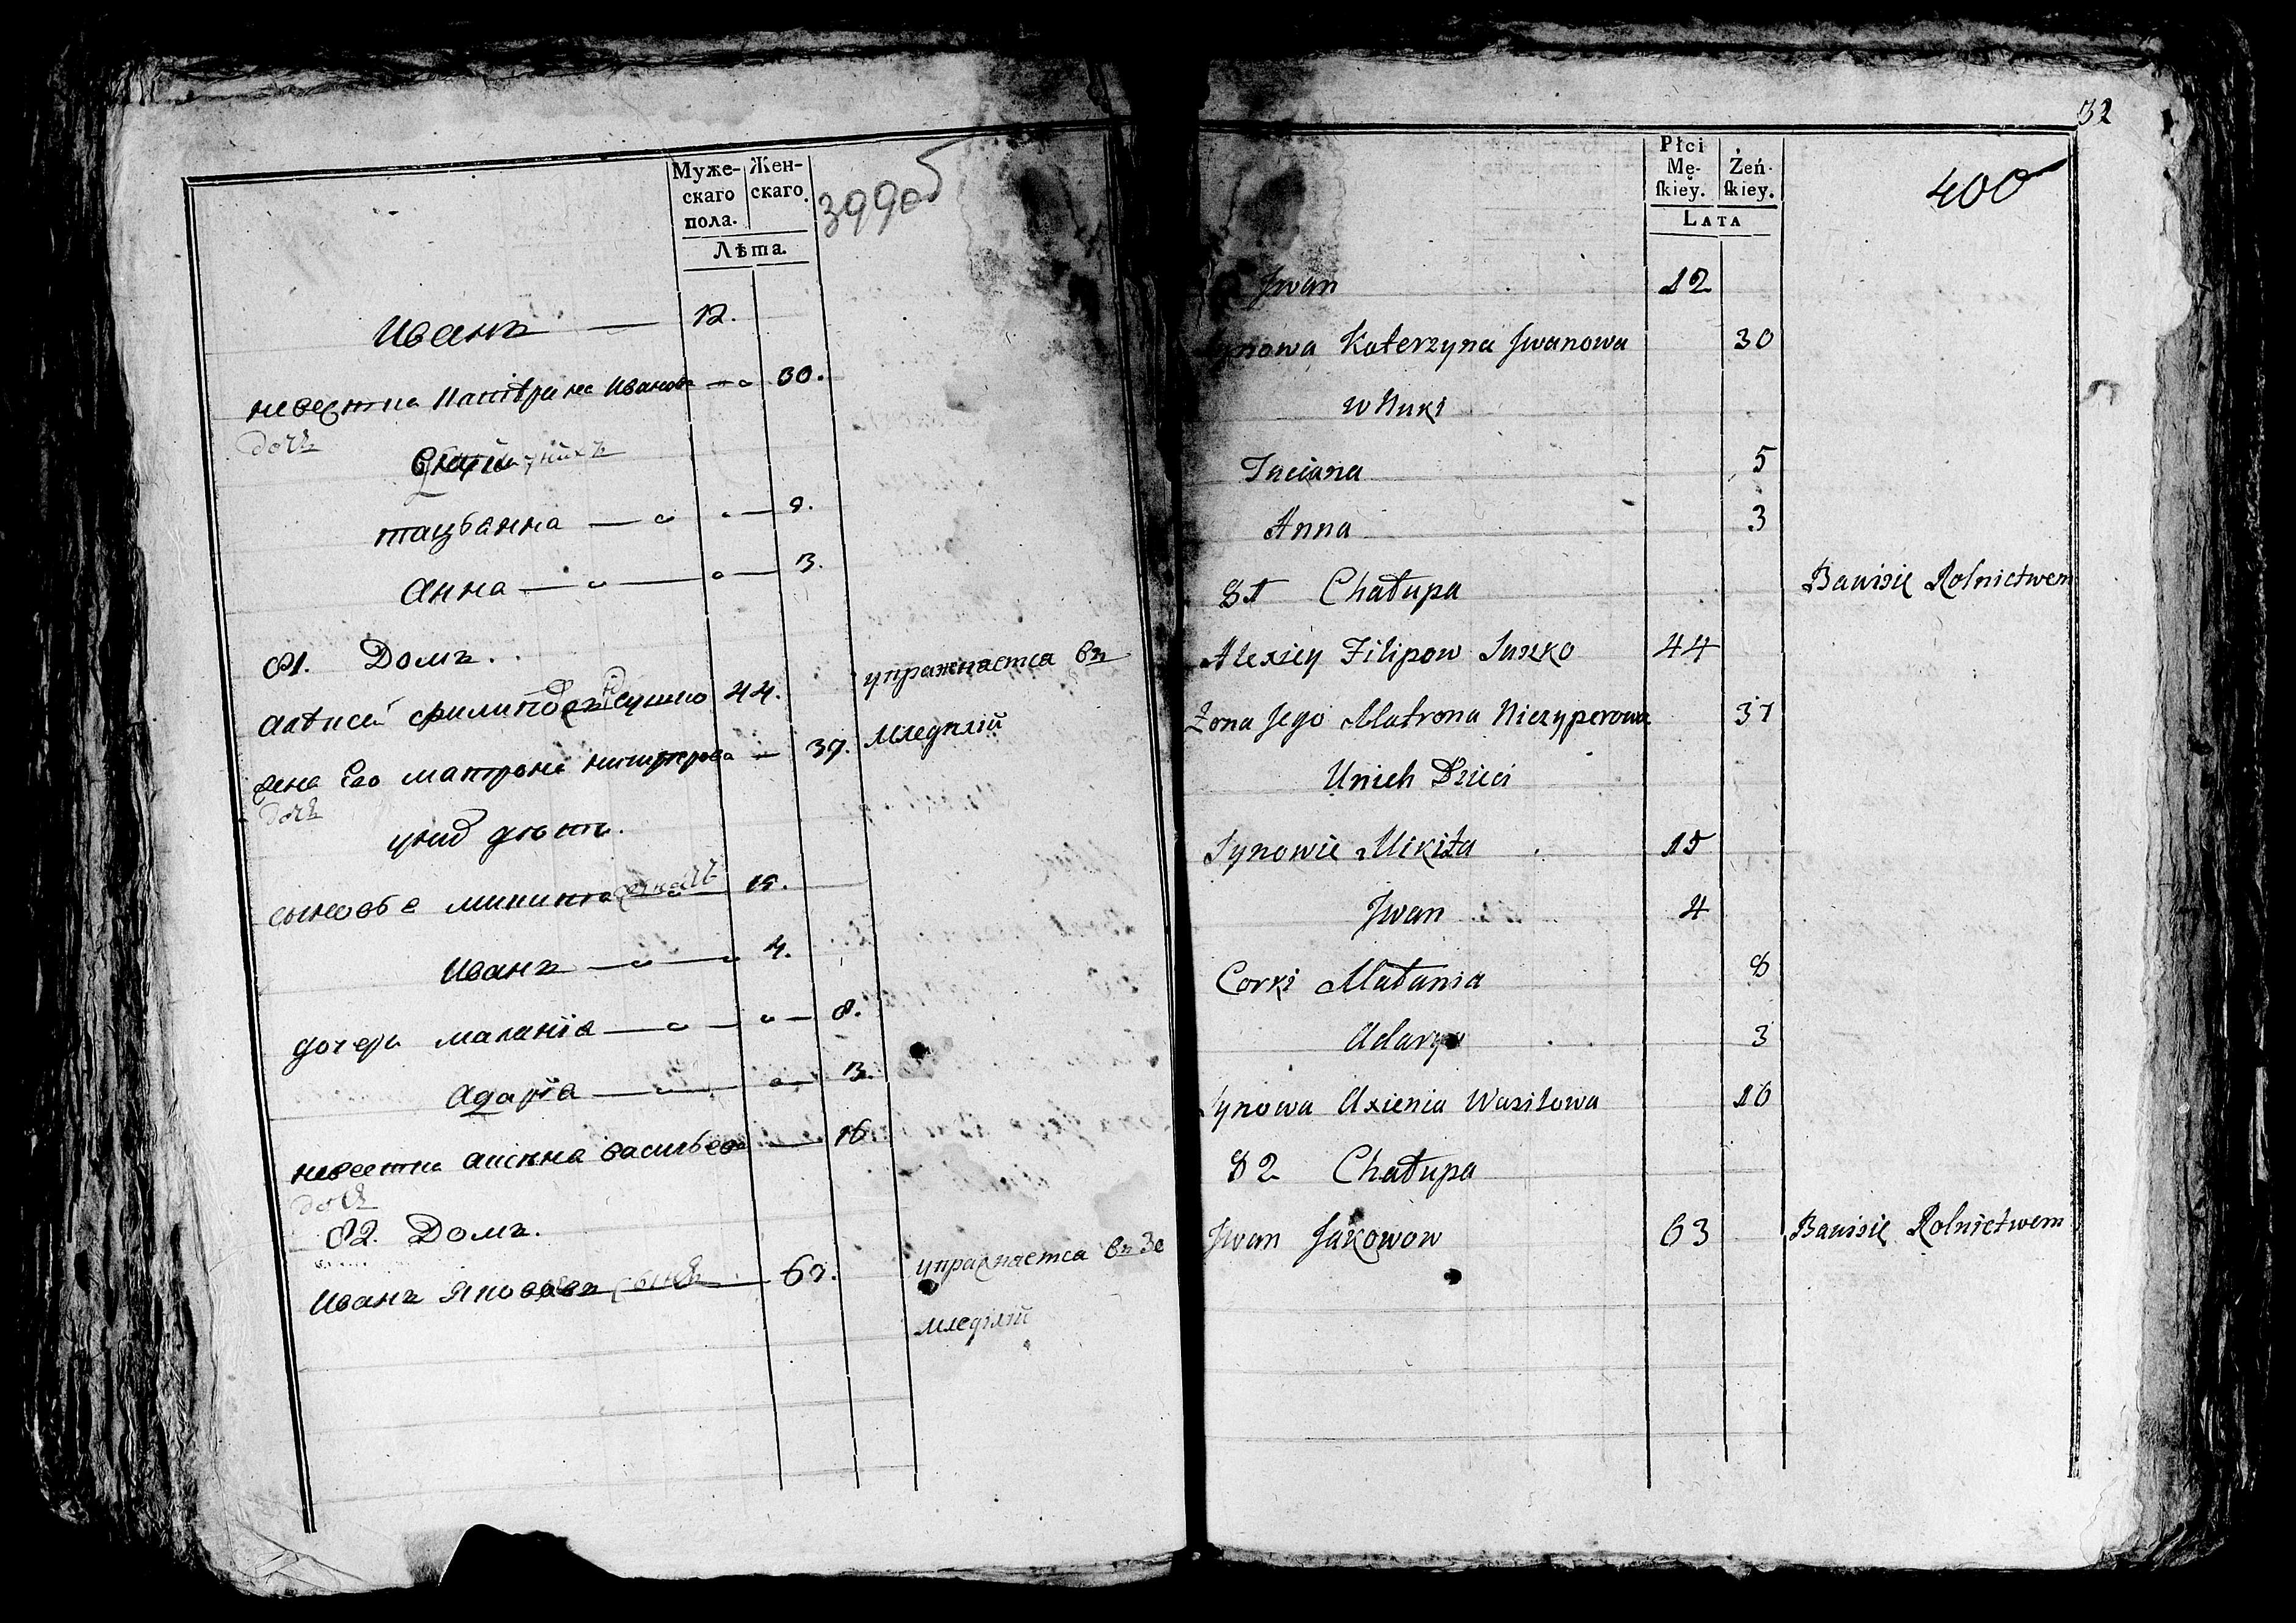 Муже-
скаго
пола.
Жен-
скаго.
Лѣта.
399об
Иванъ 12.
невестка Катѣрина Иванова 30.
дочь
Внуки у нихъ
тацьянна
Анна 3.
81. Домъ.
Алѣксей Филиповъ Сушко 44. упражняется въ
жена Его матрона ничиперова 37. Мледѣлій
дочь
у нихъ дѣти.
сыновье микита 15.
Иванъ 4.
дочери маланія 8.
Адарія 3.
невестка аксенья васильева 16
дочь
82. Домъ.
Иванъ Яковов сынъ 63. упражняется въ Зе
мледѣлій
32
Płci
Mę-
ſkiey.
Żeń-
ſkiey.
LATA
400
Jwan 12
Synowa Katerzyna Jwanowa 30
Wnuki
Taciana 5
Anna 3
81 Chałupa Bawisię Rolnictwem
Alexiey Filipow Suszko 44
Żona Jego Matrona Niczyperowa 37
Unich Dzieci
Synowie Mikita 15
Jwan 4
Corki Małania 8
Adarya 3
Synowa Axienia Wasilowa 16
82 Chałupa
Jwan Jakowow 63 Bawisię Rolnictwem